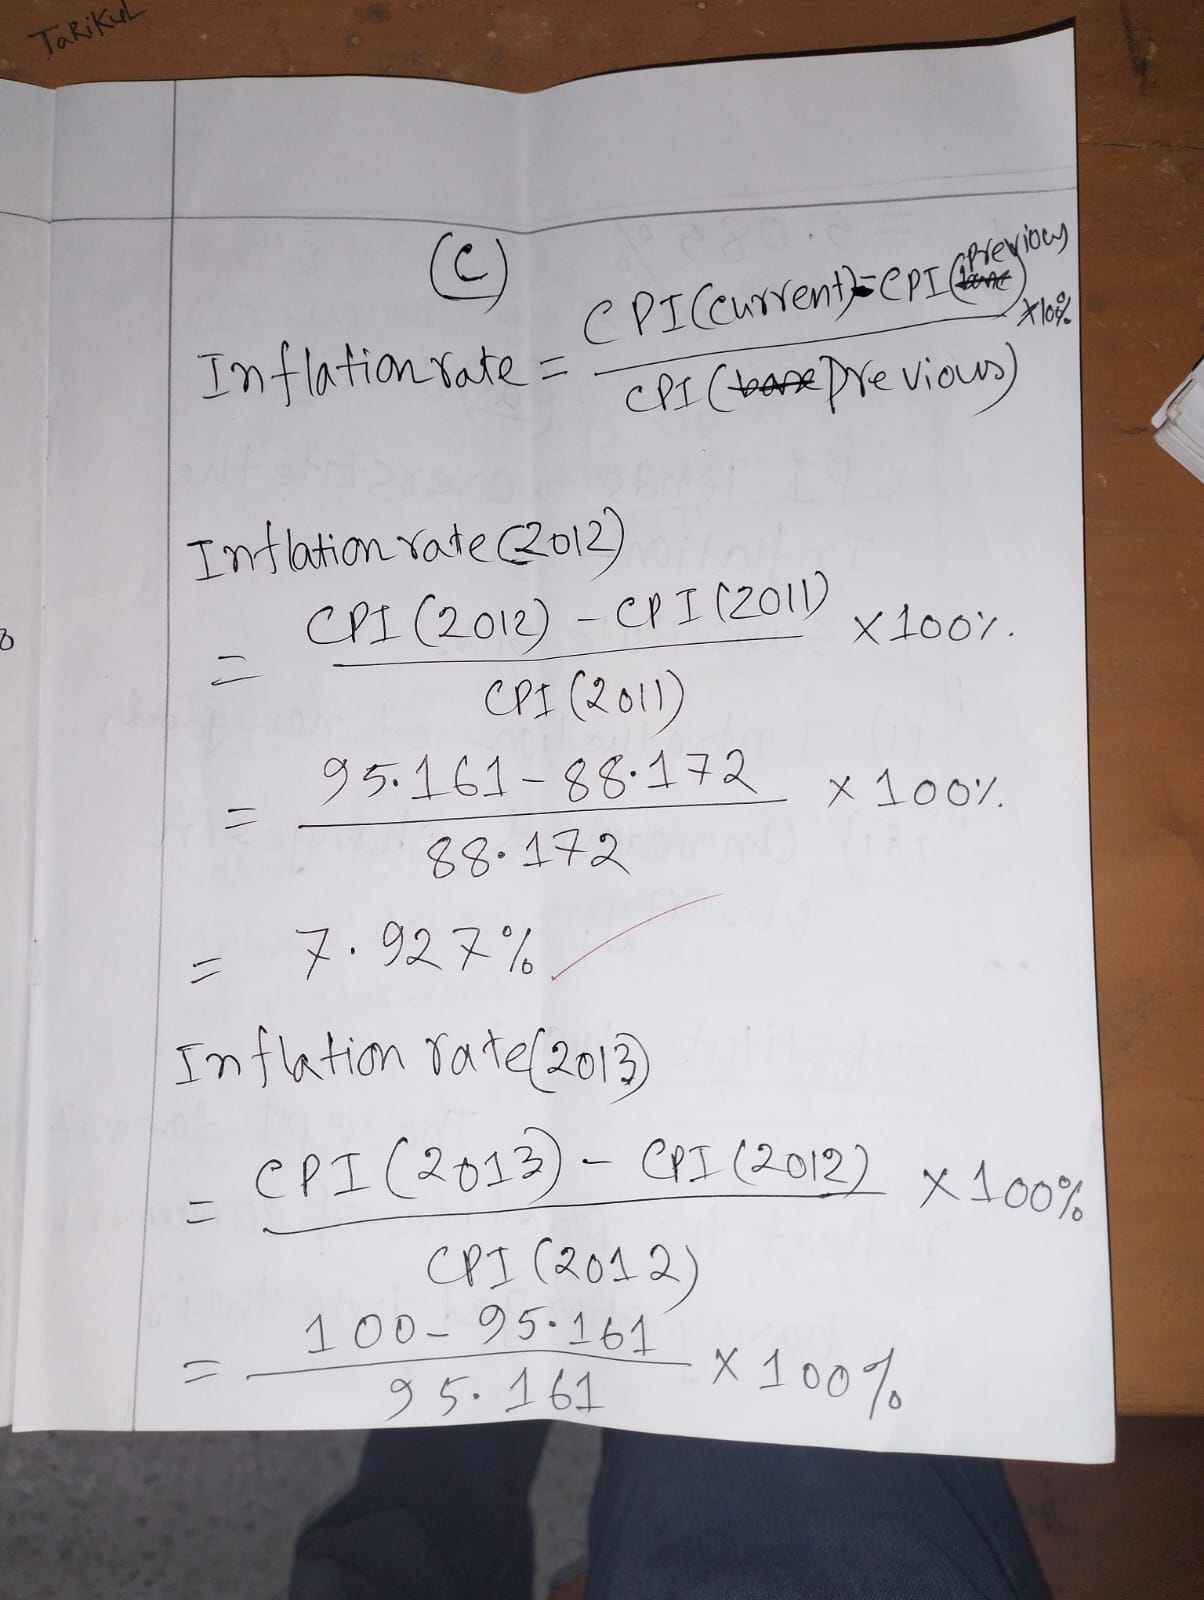 TaRiKul
(C)
Inflation rate = CPI (current) - CPI (previous) / CPI (previous) ×100%
Inflation rate (2012)
= CPI (2012) - CPI (2011) / CPI (2011) × 100%.
= 95.161 - 88.172 / 88.172 × 100%.
= 7.927%
Inflation rate (2013)
= CPI (2013) - CPI (2012) / CPI (2012) × 100%
= 100 - 95.161 / 95.161 × 100%